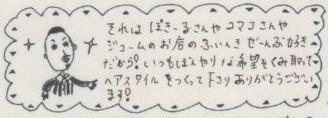 それは ぽきーるさんや コマコさんや
ジュームのお店のふんいき ぜーんぶ好き
だから! いつもぼんやりな希望をくみ取って
ヘアスタイルをつくって下さりありがとうござい
ます!